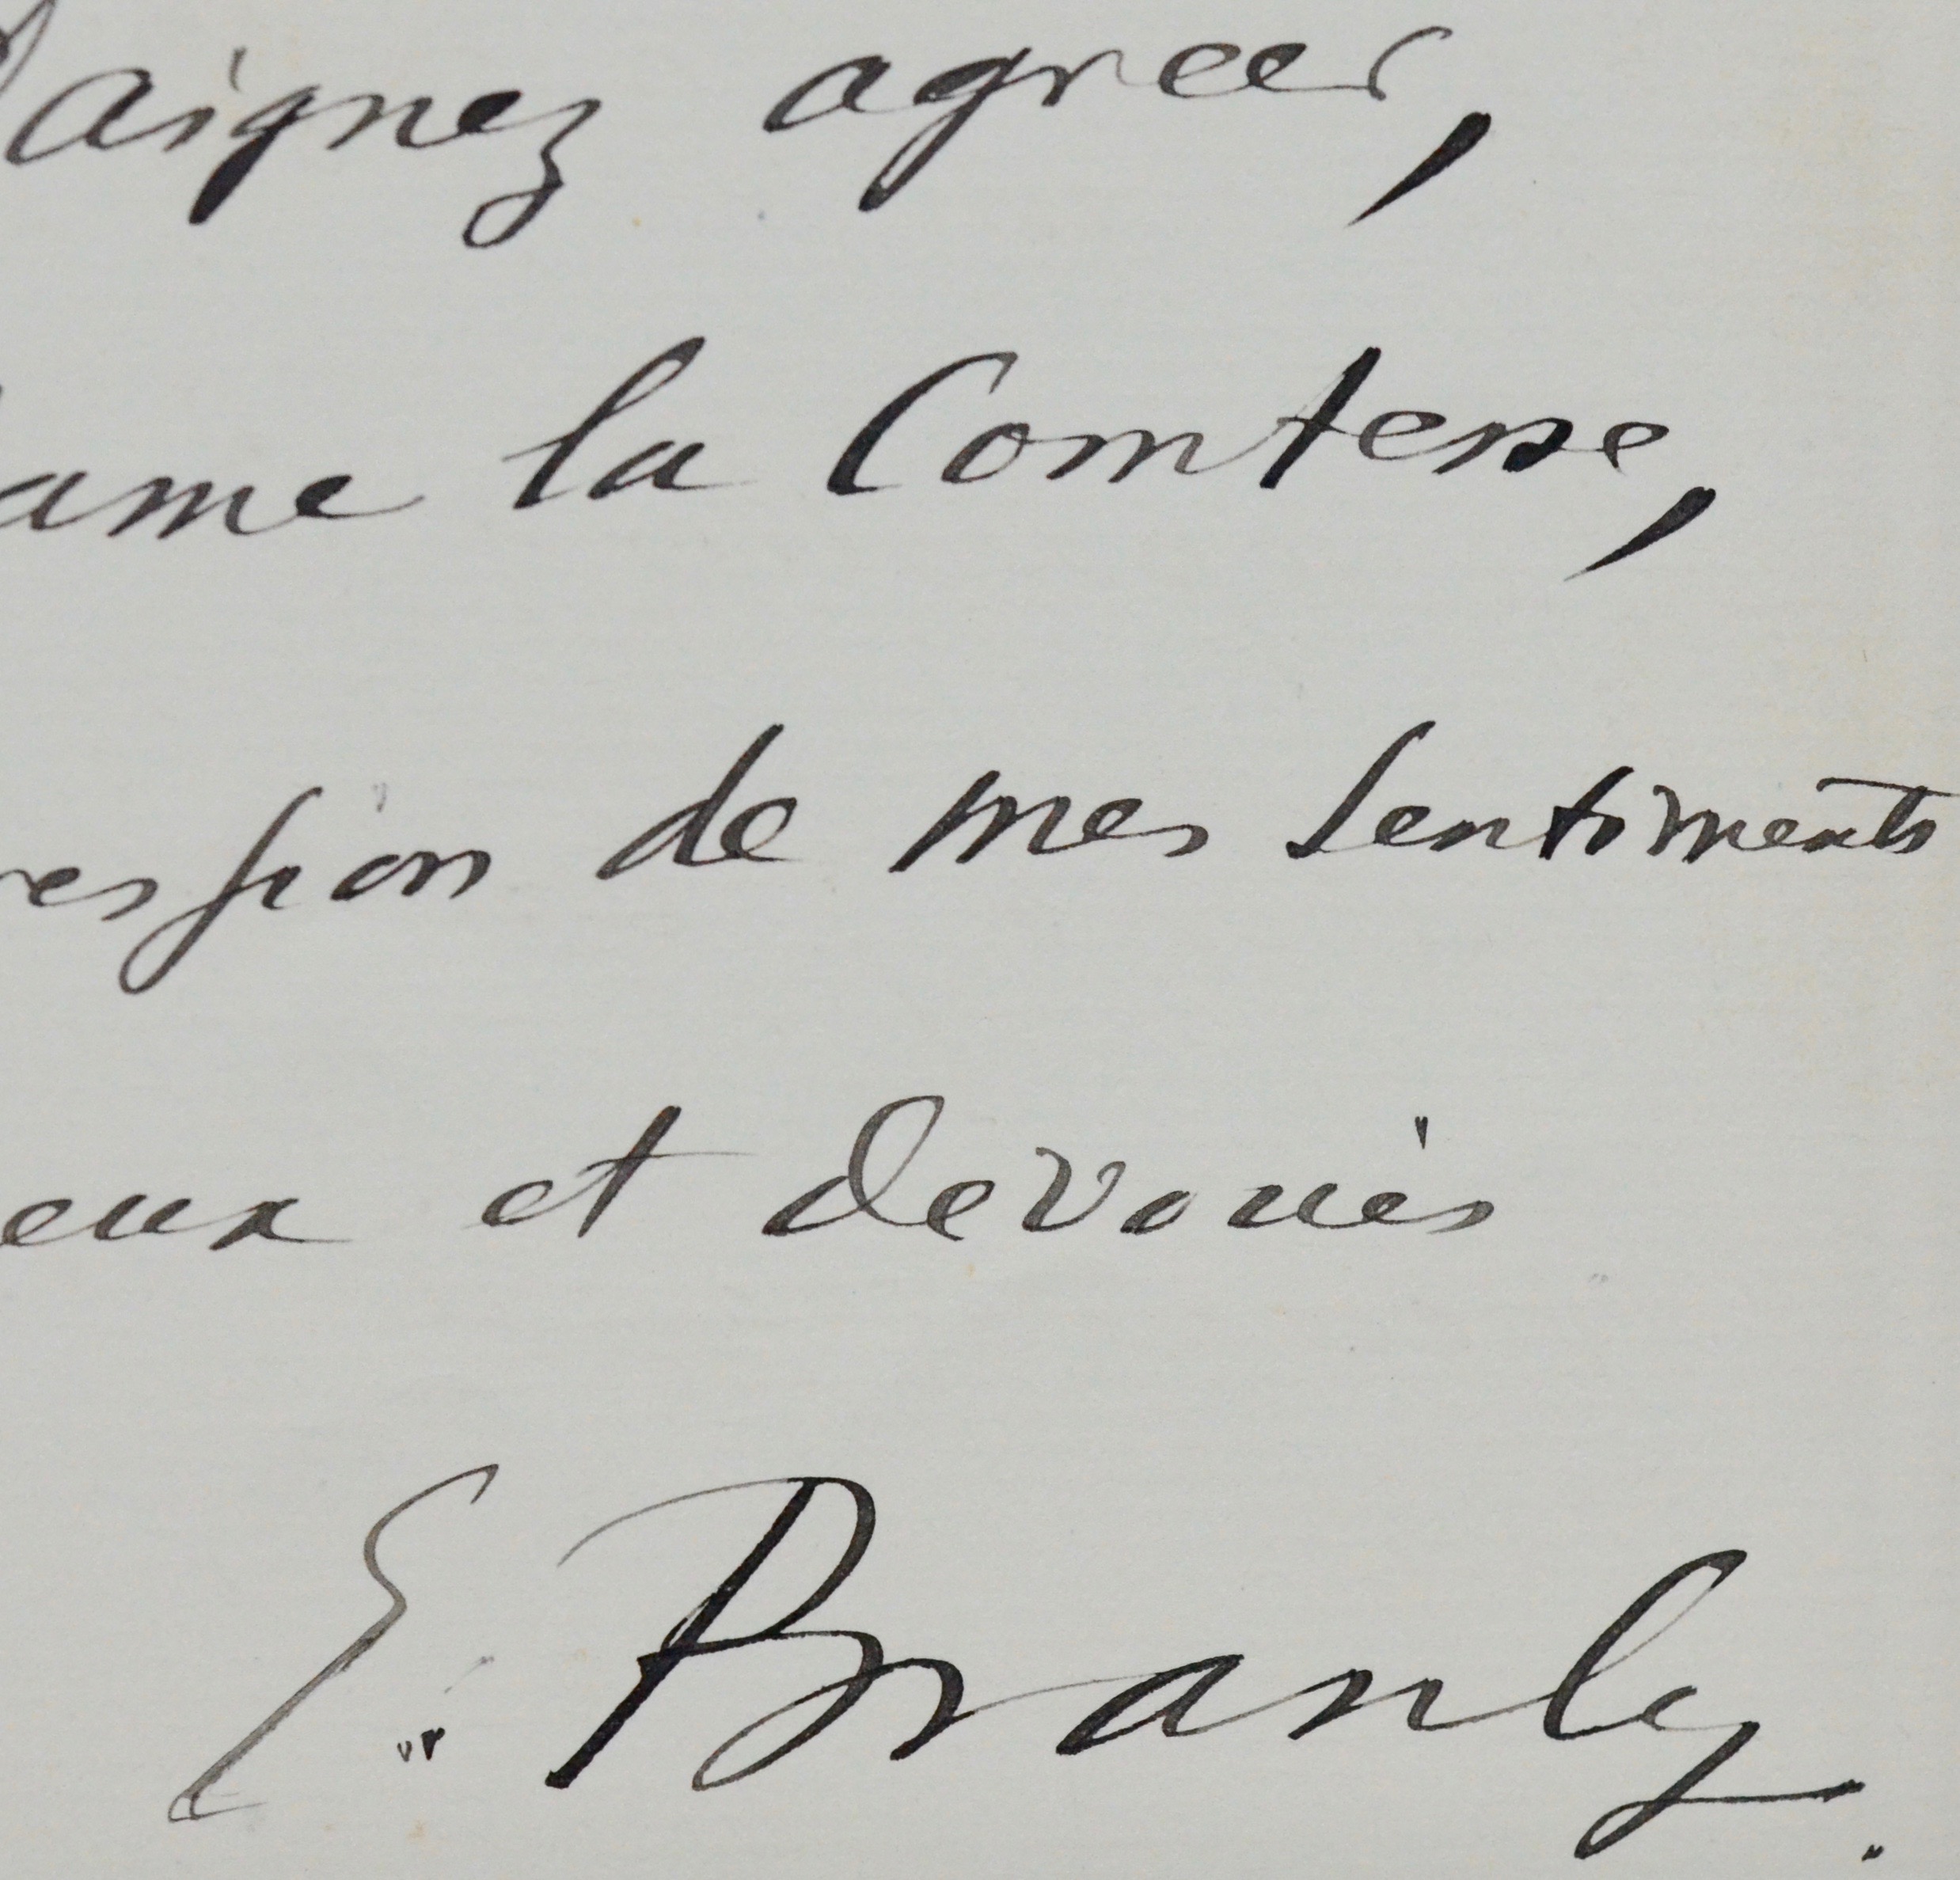 Daignez agreer,
ame la Comtesse,
ression de mes sentiments
eux et devoués
E. Branly.